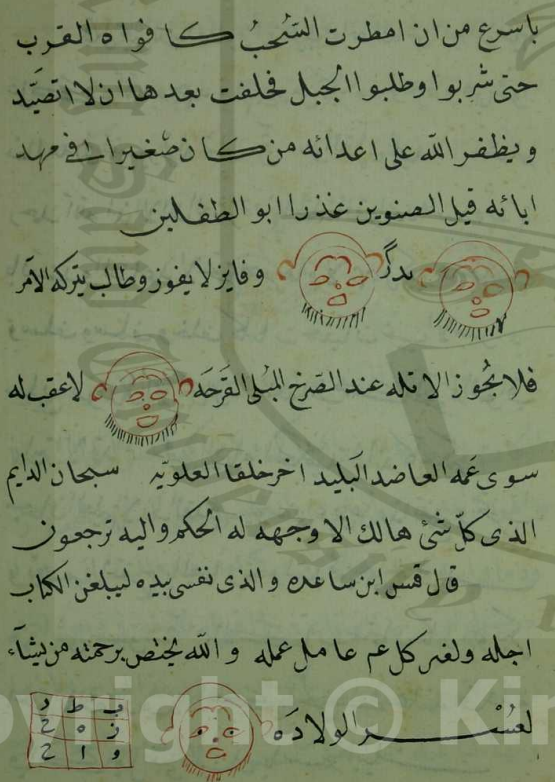 باسرع من ان امطرت السُحبُ كافواه القرب
حتى شربوا وطلبوا الجبل فحلفت بعدها ان لا اتصيّد
ويظفر الله على اعدائه من كان صغيرا في مهد
ابائه قيل الصنوين غذرا ابو الطفلين
وفايز لا يفوز وطالب يتركه الآمر
فلا يجُوز الا تله عند الصَرخ المُبلى القَرحَه لا عقب له
سوى عَمه العاضد البَليد اخر خلفا العلويّه سبحان الدايم
الذى كلّ شئ هالك الا وجهه له الحكم واليه ترجعون
قال قس ابن ساعده والذى نفسى بيده ليبلغن الكتاب
اجله ولغير كل عم عامل عمله والله يختص برحمته من يشآء
لعُسْر الولادَه
ب ط د
ز ه ج
و ا ح
Copyright © Kin